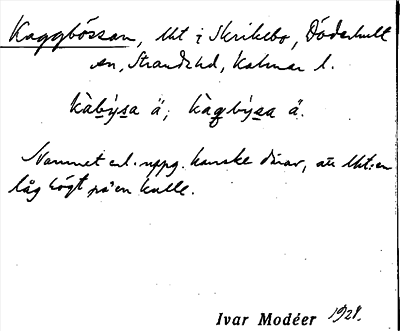 Kaggbössan, lht i Skrikebo, Döderhult
sn, Stranda hd, Kalmar l.
kàbýsa ä, kàgbýsa ä.
Namnet enl. uppg. kanske därav, att lht:en
låg högt på en kulle.
Ivar Modéer 1928.